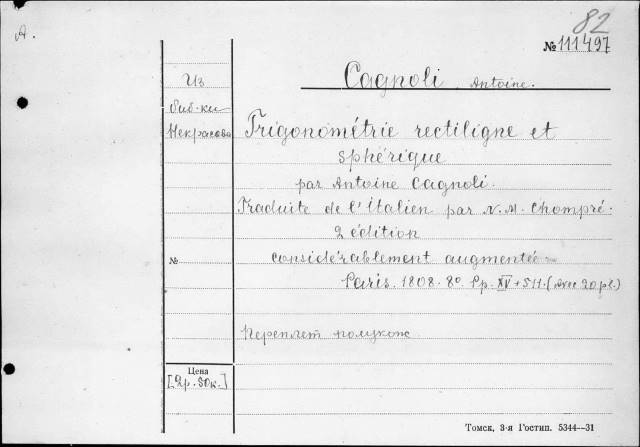 A.
82
№ 111497
Из
биб-ки
Некрасова
Cagnoli, Antoine.
Trigonométrie rectiligne et
sphérique
par Antoine Cagnoli.
Traduite de l'Italien par N. M. Chompré.
2 édition
considérablement augmentée
Paris. 1808. 8o. Pp. XV + 511. (avec 20 pl.)
№
Переплет полукож.
Цена
[2р. 80к.]
Томск, 3-я Гостип. 5344—31